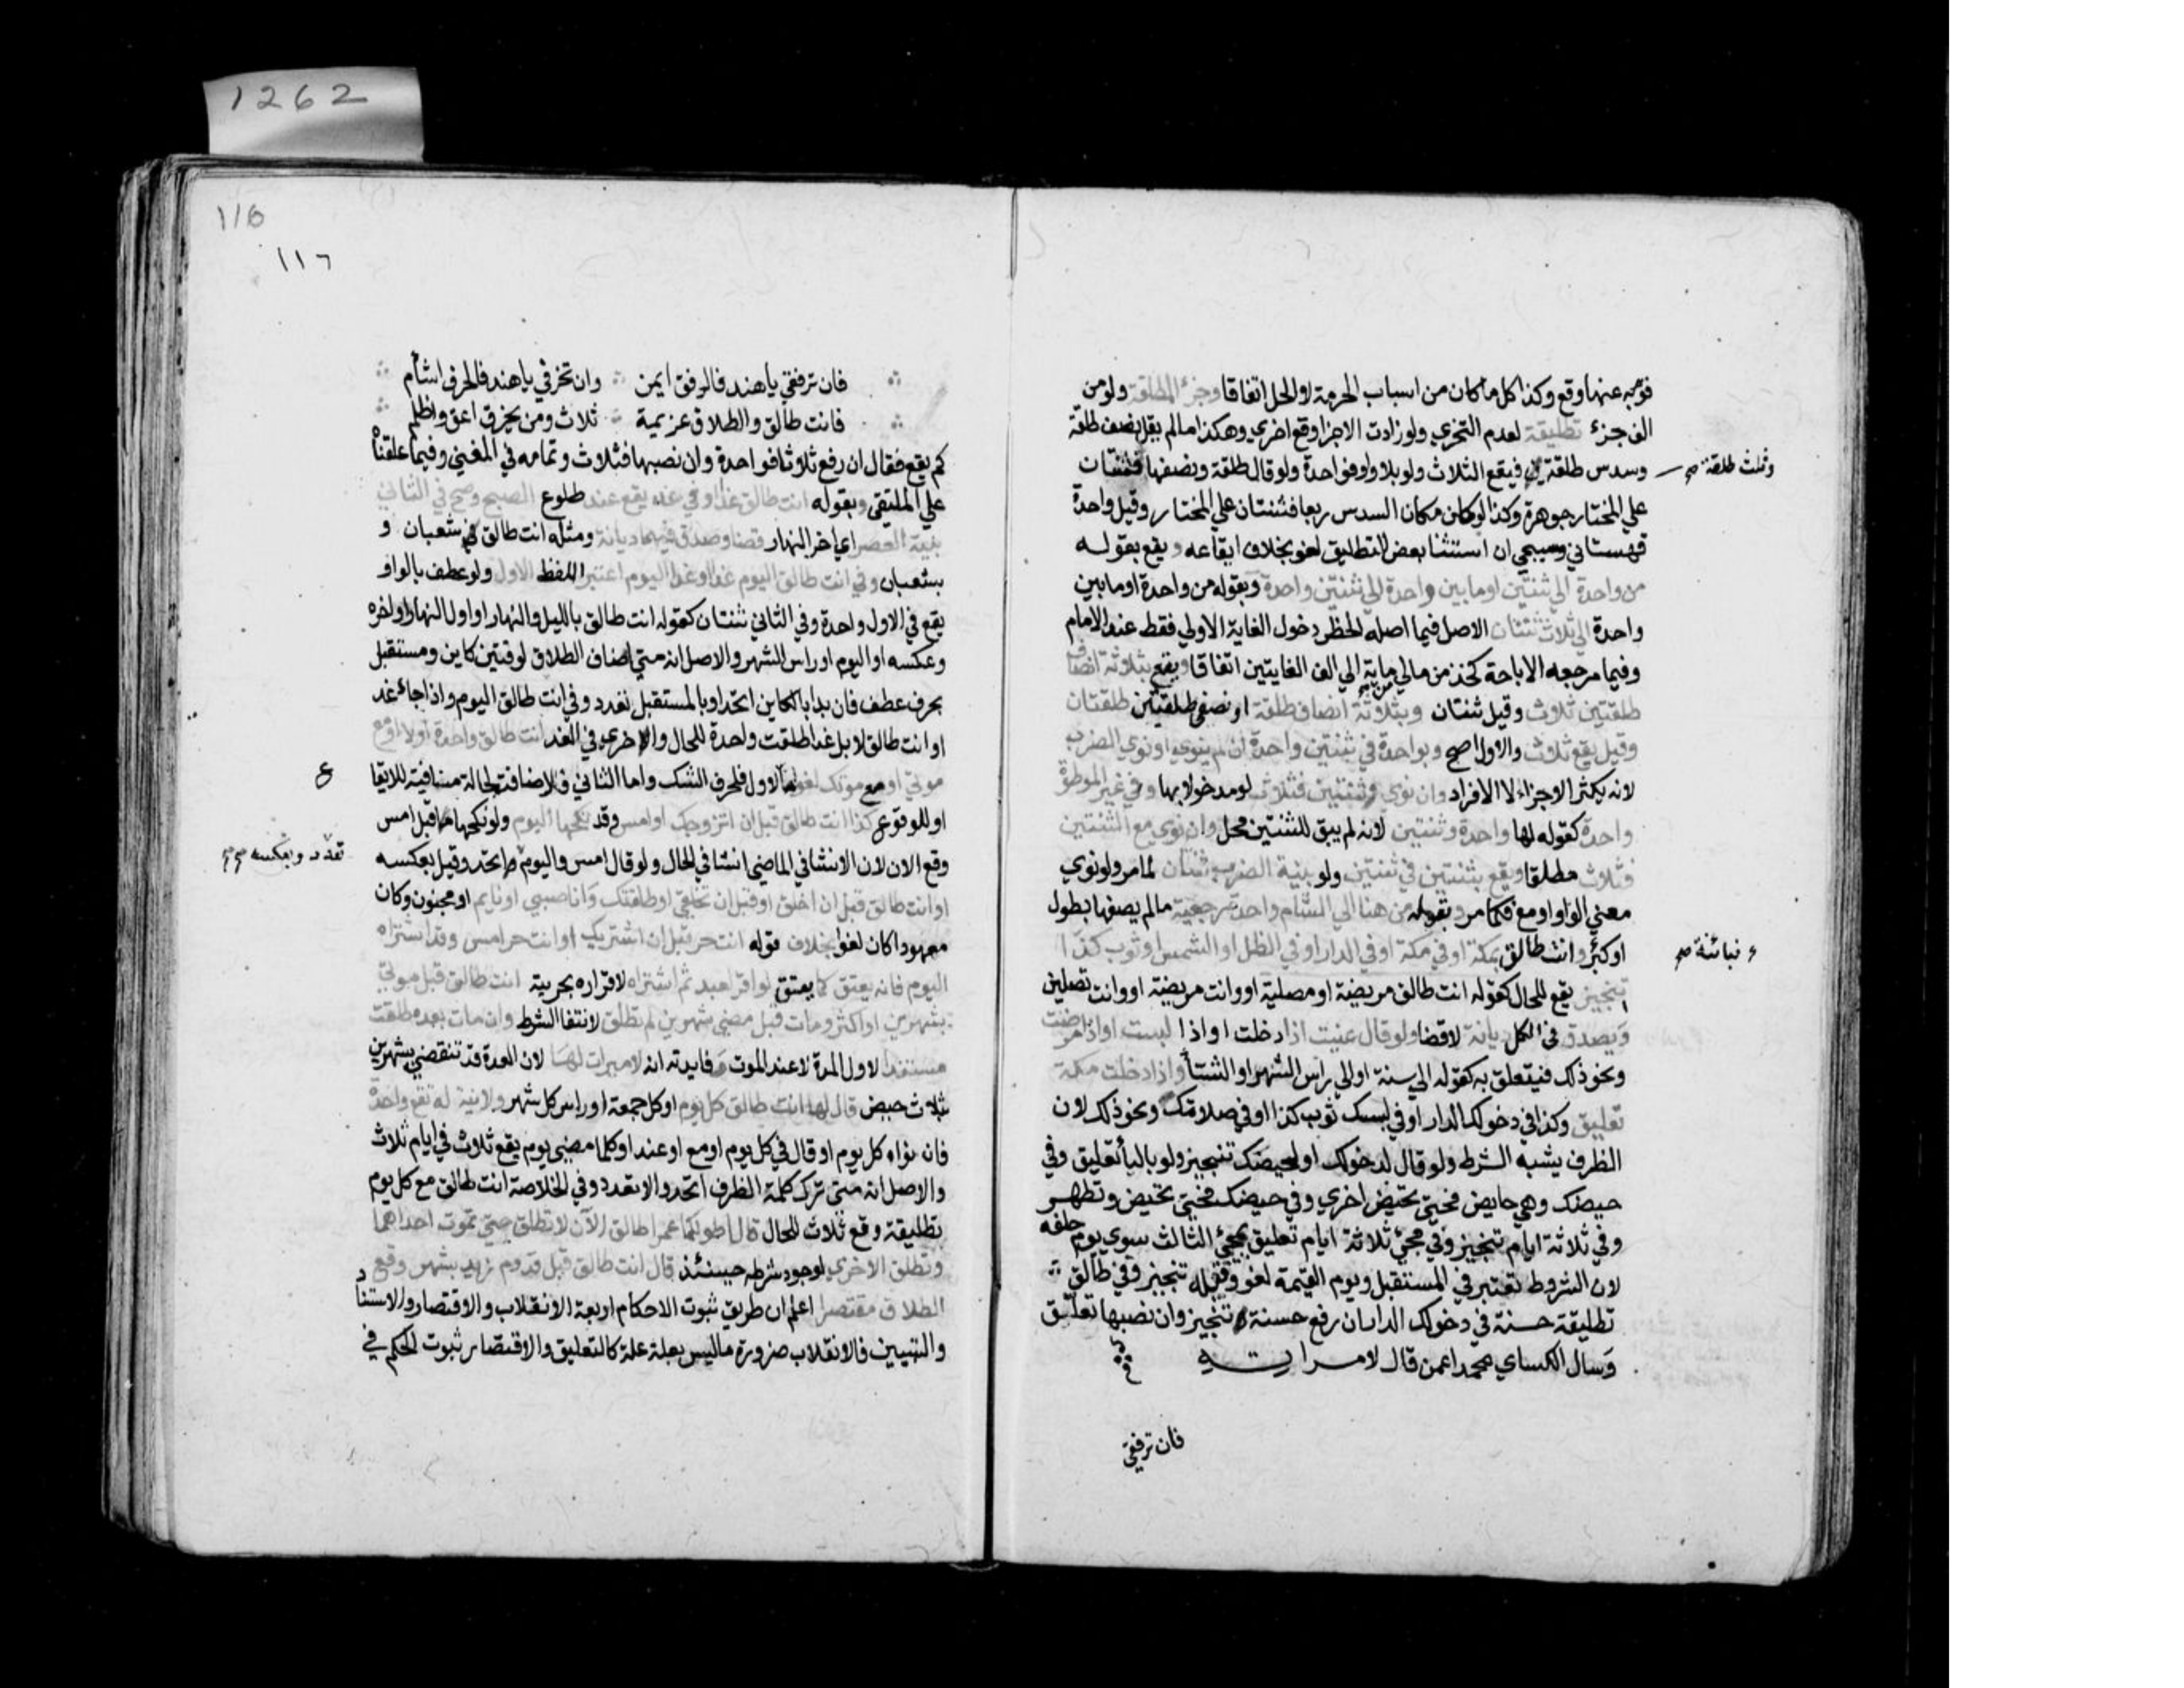 1262
فوجه عنها وقع وكذا كل ما كان من اسباب الحرمة لا الحل اتفاقا وجزء الطلقة ولو من
الف جزء تطليقة لعدم التجزي ولو زادت الاجزا وقع اخري وهكذا ما لم يقل نصف طلقة
وثلث طلقة صح
وسدس طلقة فيقع الثلاث ولو بلا واو فواحدة ولو قال طلقة ونصفها فثنتان
علي المختار جوهرة وكذا لو كان مكان السدس ربعا فثنتان علي المختار وقيل واحدة
قهستاني وسيجي ان استثنا بعض التطليق لغو بخلاف ايقاعه ويقع بقوله
من واحدة الي ثنتين او ما بين واحدة الي ثنتين واحدة وبقوله من واحدة او ما بين
واحدة الي ثلاث ثنتان الاصل فيما اصله الحظر دخول الغاية الاولي فقط عند الامام
وفيما مرجعه الاباحة كخذ من مالي من ماية الي الف الغايتين اتفاقا ويقع بثلاثة انصاف
طلقتين ثلاث وقيل ثنتان وبثلاثة انصاف طلقة او نصفي طلقتين طلقتان
وقيل يقع ثلاث والاول اصح وبواحدة في ثنتين واحدة ان لم ينوي او نوي الضرب
لانه يكثر الاجزاء لا الافراد وان نوي وثنتين فثلاث لو مدخولا بها وفي غير الموطوة
واحدة كقوله لها واحدة وثنتين لانه لم يبق للثنتين محل وان نوي مع الثنتين
فثلاث مطلقا ويقع بثنتين في ثنتين ولو بنية الضرب ثنتان لما مر ولو نوي
معني الواو او مع فكما مر وبقوله من هنا الي الشام واحدة رجعية ما لم يصفها بطول
فبائنة صح
او كبر وانت طالق بمكة او في مكة او في الدار او في الظل او الشمس او ثوب كذا
تنجيز يقع للحال كقوله انت طالق مريضة او مصلية او وانت مريضة او وانت تصلين
ويصدق في الكل ديانة لا قضا ولو قال عنيت اذا دخلت او اذا لبست او اذا مرضت
ونحو ذلك فيتعلق به كقوله الي سنة او الي راس الشهر او الشتأ واذا دخلت مكة
تعليق وكذا في دخولك الدار او في لبسك ثوب كذا او في صلاتك ونحو ذلك لان
الظرف يشبه الشرط ولو قال لدخولك او لحيضك تنجيز ولو بالبأ تعليق وفي
حيضك وهي حايض فحتي تحيض اخري وفي حيضتك فحتي تحيض وتطهر
وفي ثلاثة ايام تنجيز وفي مجئ ثلاثة ايام تعليق بمجئ الثالث سوي يوم حلفه
لان الشروط تعتبر في المستقبل ويوم القيمة لغو وقبله تنجيز وفي طالق
تطليقة حسنة في دخولك الدار ان رفع حسنة تنجيز وان نصبها تعليق
وسال الكساي محمدا عمن قال لامراته
فان ترفقي
116
١١٦
فان ترفقي يا هند فالرفق ايمن وان تخرقي يا هند فالخرق اشأم
فانت طالق والطلاق عزيمة ثلاث ومن يخرق اعق واظلم
كم يقع فقال ان رفع ثلاثا فواحدة وان نصبها فثلاث وتمامه في المغني وفيما علقناه
علي الملتقي وبقوله انت طالق غدا او في غد يقع عند طلوع الصبح وصح في الثاني
بنية العصر اي اخر النهار قضا وصدق فيهما ديانة ومثله انت طالق في شعبان و
بشعبان وفي انت طالق اليوم غدا او غدا اليوم اعتبر اللفظ الاول ولو عطف بالواو
يقع في الاول واحدة وفي الثاني ثنتان كقوله انت طالق بالليل والنهار او اول النهار واخره
وعكسه او اليوم وراس الشهر والاصل انه متي اضاف الطلاق لوقتين كاين ومستقبل
بحرف عطف فان بدا بالكاين اتحد او بالمستقبل تعدد وفي انت طالق اليوم واذا جاء غد
او انت طالق لا بل غدا طلقت واحدة للحال والاخري في الغد انت طالق واحدة او لا او مع
ع
موتي او مع موتك لغو اما الاول فلحرف الشك واما الثاني فلاضافته لحالة منافية للايقا
او للوقوع كذا انت طالق قبل ان اتزوجك او امس وقد نكحها اليوم ولو نكحها قبل امس
تعدد وبعكسه صح
وقع الان لان الانشا في الماضي انشا في الحال ولو قال امس واليوم اتحد وقيل بعكسه
او انت طالق قبل ان اخلق او قبل ان تخلقي او طلقتك وانا صبي او نايم او مجنون وكان
معهودا كان لغوا بخلاف قوله انت حر قبل ان اشتريك او انت حر امس وقد اشتراه
اليوم فانه يعتق كما يعتق لو اقر لعبد ثم اشتراه لاقراره بحريته انت طالق قبل موتي
بشهرين او اكثر ومات قبل مضي شهرين لم تطلق لانتفا الشرط وان مات بعده طلقت
مستندا لاول المدة لا عند الموت وفايدته انه لا ميراث لها لان العدة قد تنقضي بشهرين
بثلاث حيض قال لها انت طالق كل يوم او كل جمعة او راس كل شهر ولا نية له تقع واحدة
فان نواه كل يوم او قال في كل يوم او مع او عند او كلما مضي يوم يقع ثلاث في ايام ثلاث
والاصل انه متي ترك كلمة الظرف اتحد والا تعدد وفي الخلاصة انت طالق مع كل يوم
تطليقة وقع ثلاث للحال قال اطولكما عمرا طالق الان لا تطلق حتي تموت احداهما
وتطلق الاخري لوجود شرطه حينئذ قال انت طالق قبل قدوم زيد بشهر وقع
الطلاق مقتصرا اعلم ان طريق ثبوت الاحكام اربعة الانقلاب والاقتصار والاستناد
والتبيين فالانقلاب صيرورة ما ليس بعلة علة كالتعليق والاقتصار ثبوت الحكم في